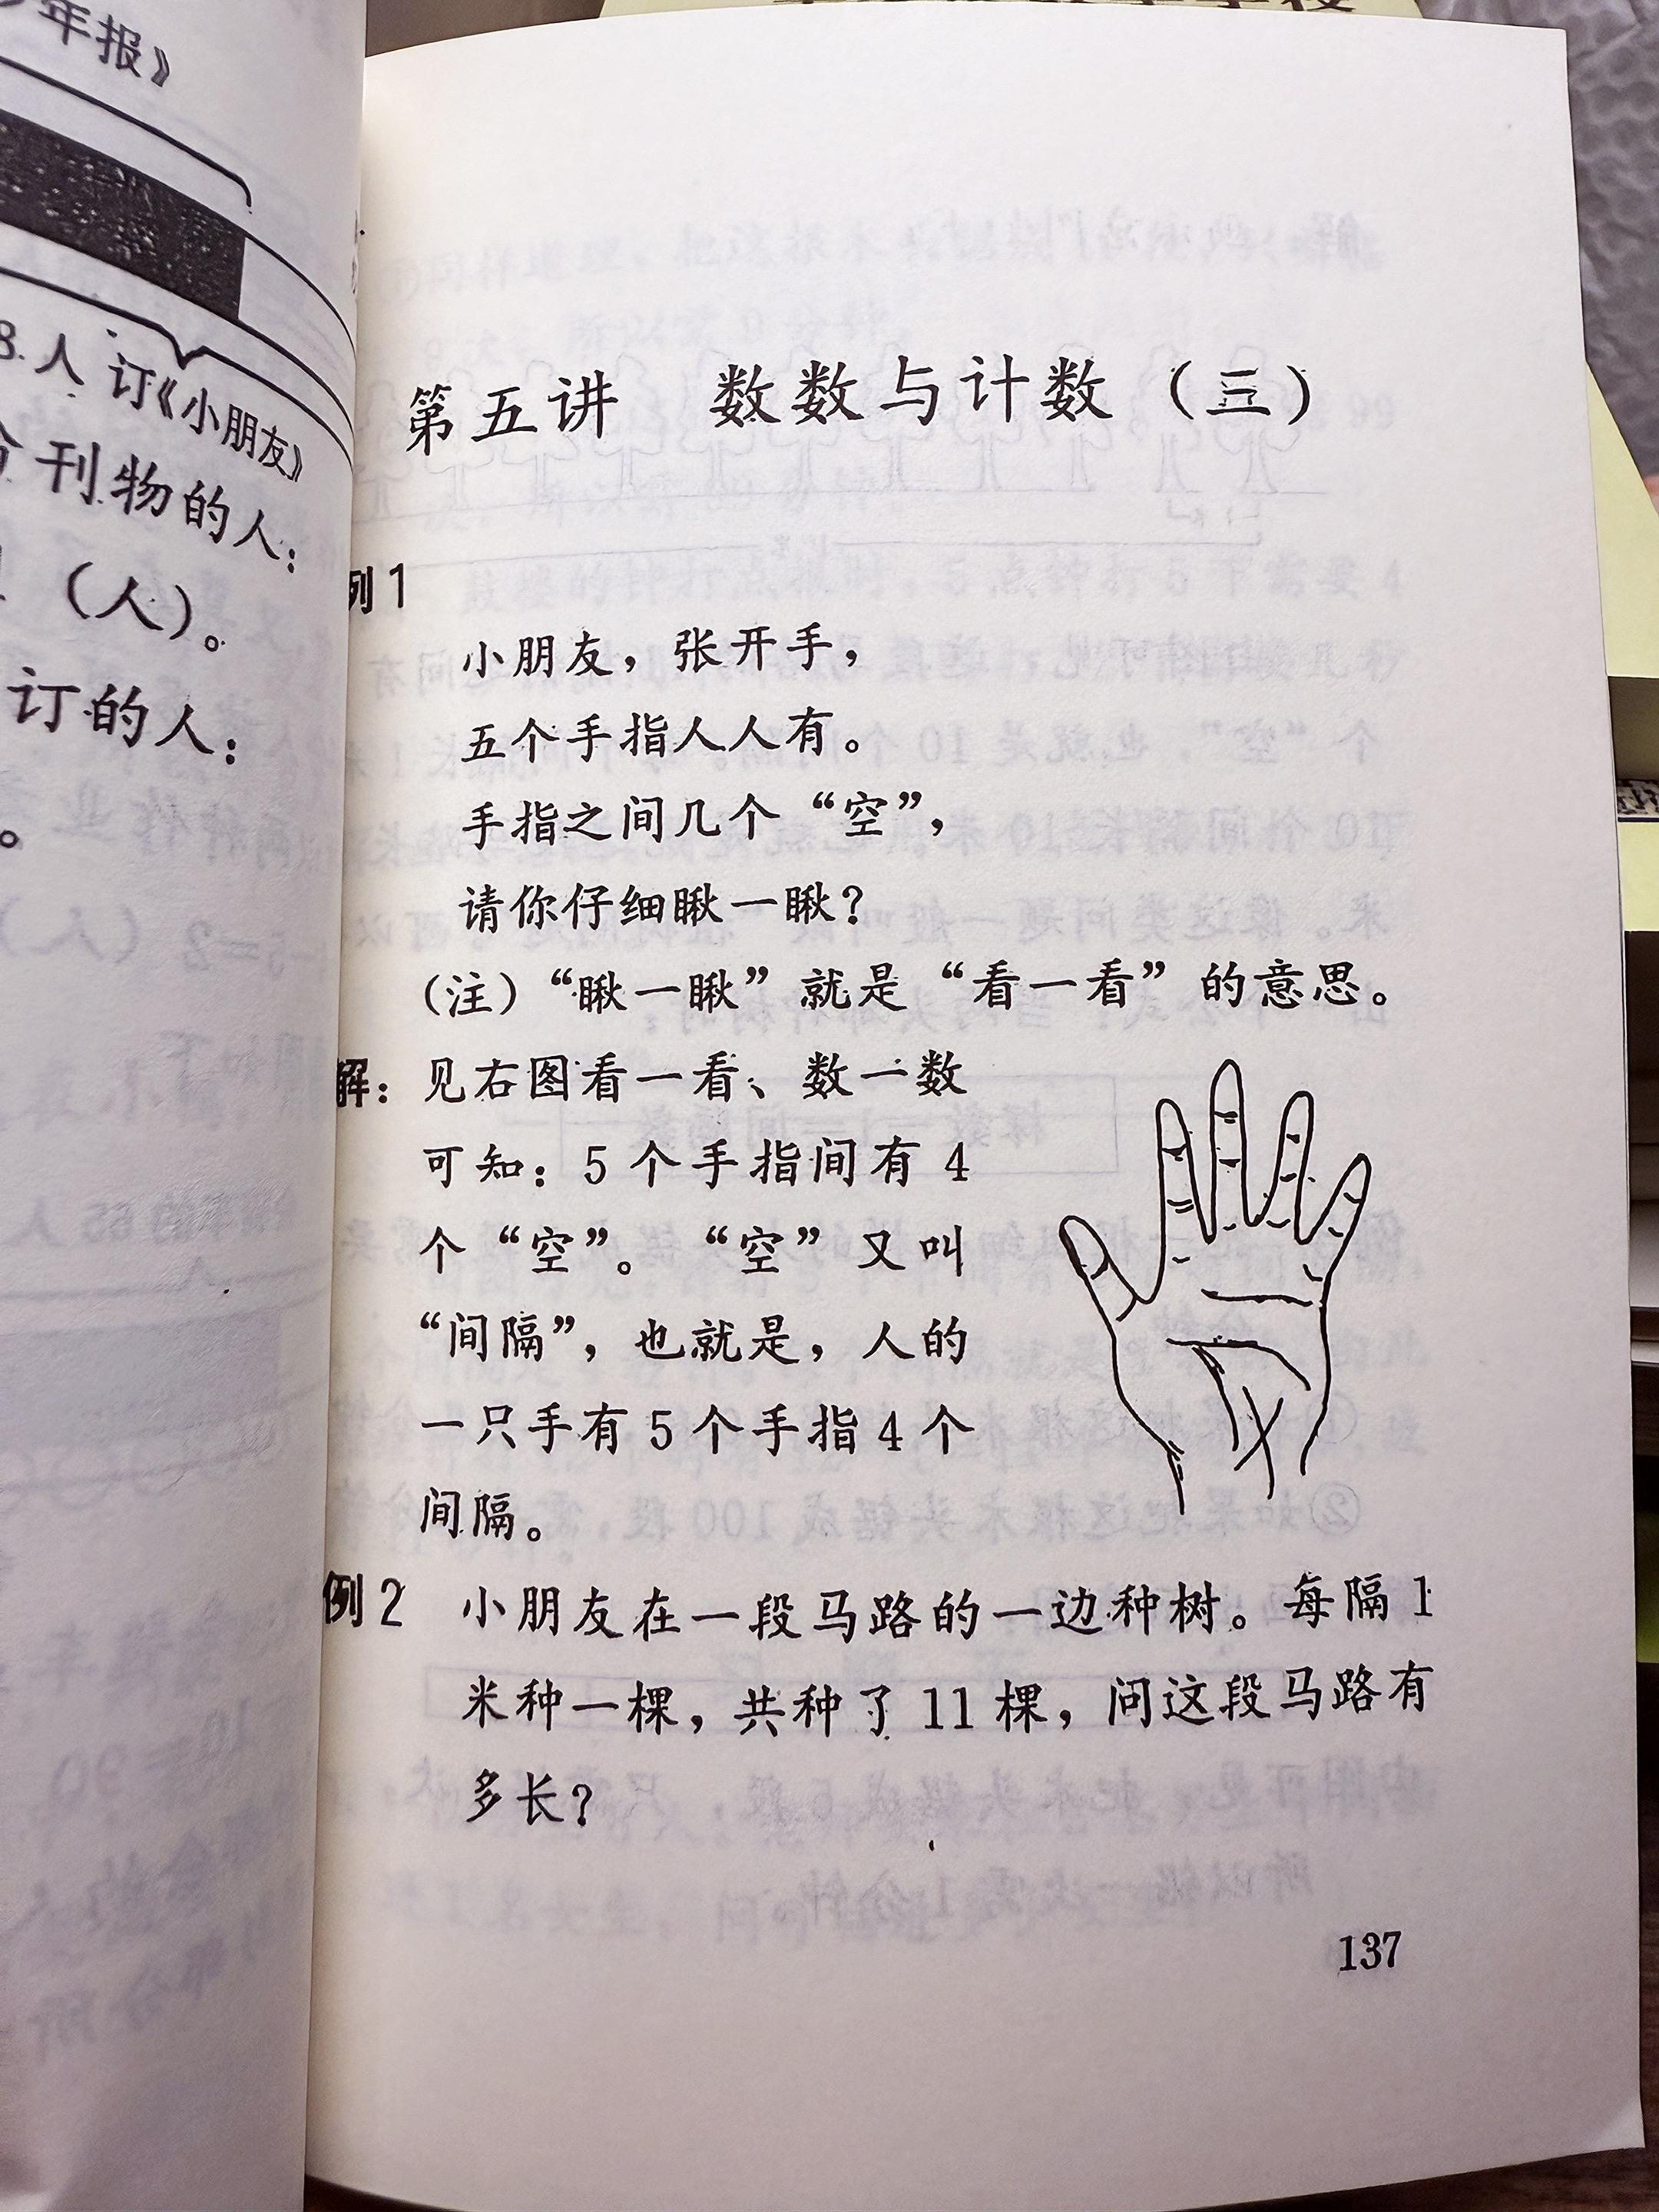 年报》
人 订《小朋友》
刊物的人：
（人）。
订的人：
。
第五讲 数数与计数（三）
例1
小朋友，张开手，
五个手指人人有。
手指之间几个“空”，
请你仔细瞅一瞅？
（注）“瞅一瞅”就是“看一看”的意思。
解：见右图看一看、数一数
可知：5个手指间有4
个“空”。“空”又叫
“间隔”，也就是，人的
一只手有5个手指4个
间隔。
例2 小朋友在一段马路的一边种树。每隔1
米种一棵，共种了11棵，问这段马路有
多长？
137